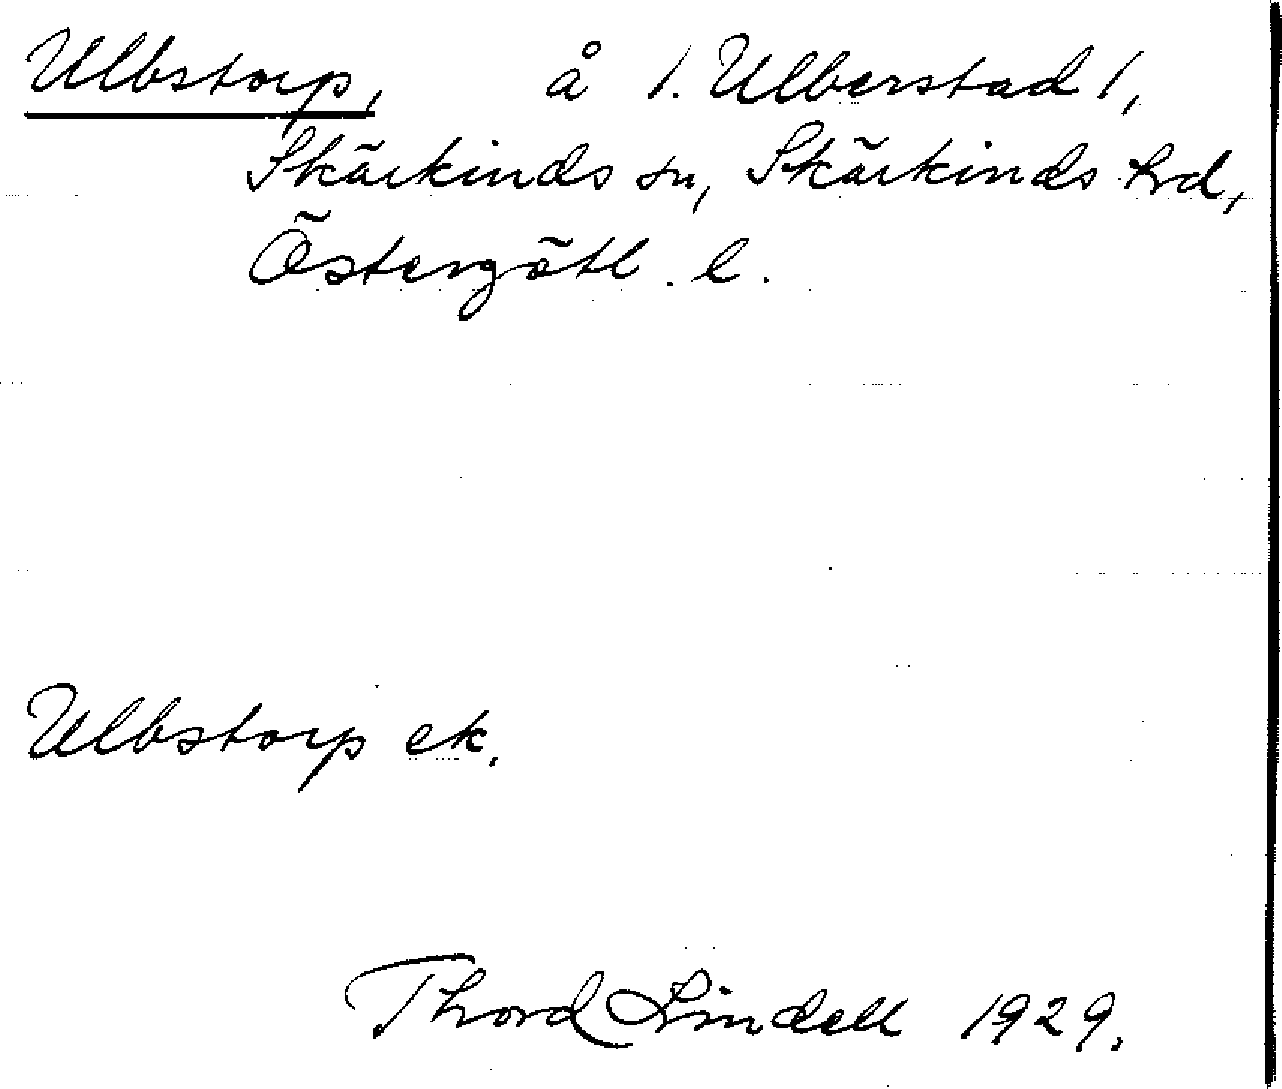 Ulbstorp, å 1. Ulberstad 1,
Skärkinds sn, Skärkinds hrd,
Östergötl. l.
Ulbstorp ek.
Thord Lindell 1929.